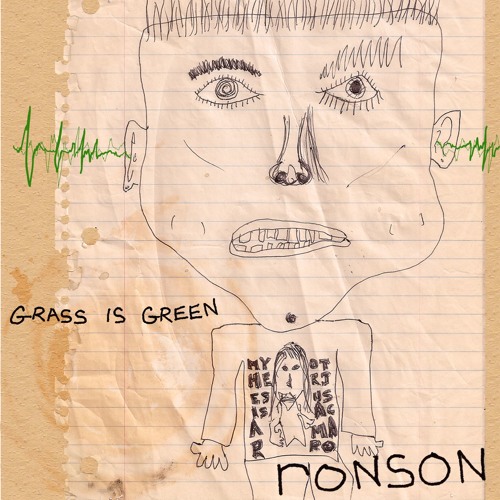 GRASS IS GREEN
MY OT
HE RJ
ES US
IS AC
A MA
R RO
RONSON